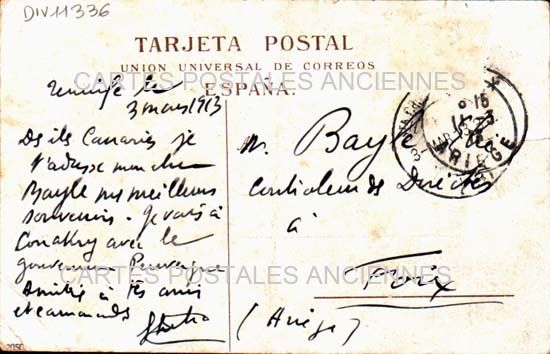 DIV11336
TARJETA POSTAL
UNION UNIVERSAL DE CORREOS
ESPAÑA.
CARTES POSTALES ANCIENNES
Tenerife le
3 mars 1913
Des iles Canaries je
t'adresse mon cher
Bayle mes meilleurs
souvenirs. Je vais à
Conakry avec le
gouverneur
Amitiés à tes amis
et camarades
M. Bayle
Controleur des Directes
à
Foix
(Ariège)
ARIEGE
CARTES POSTALES ANCIENNES